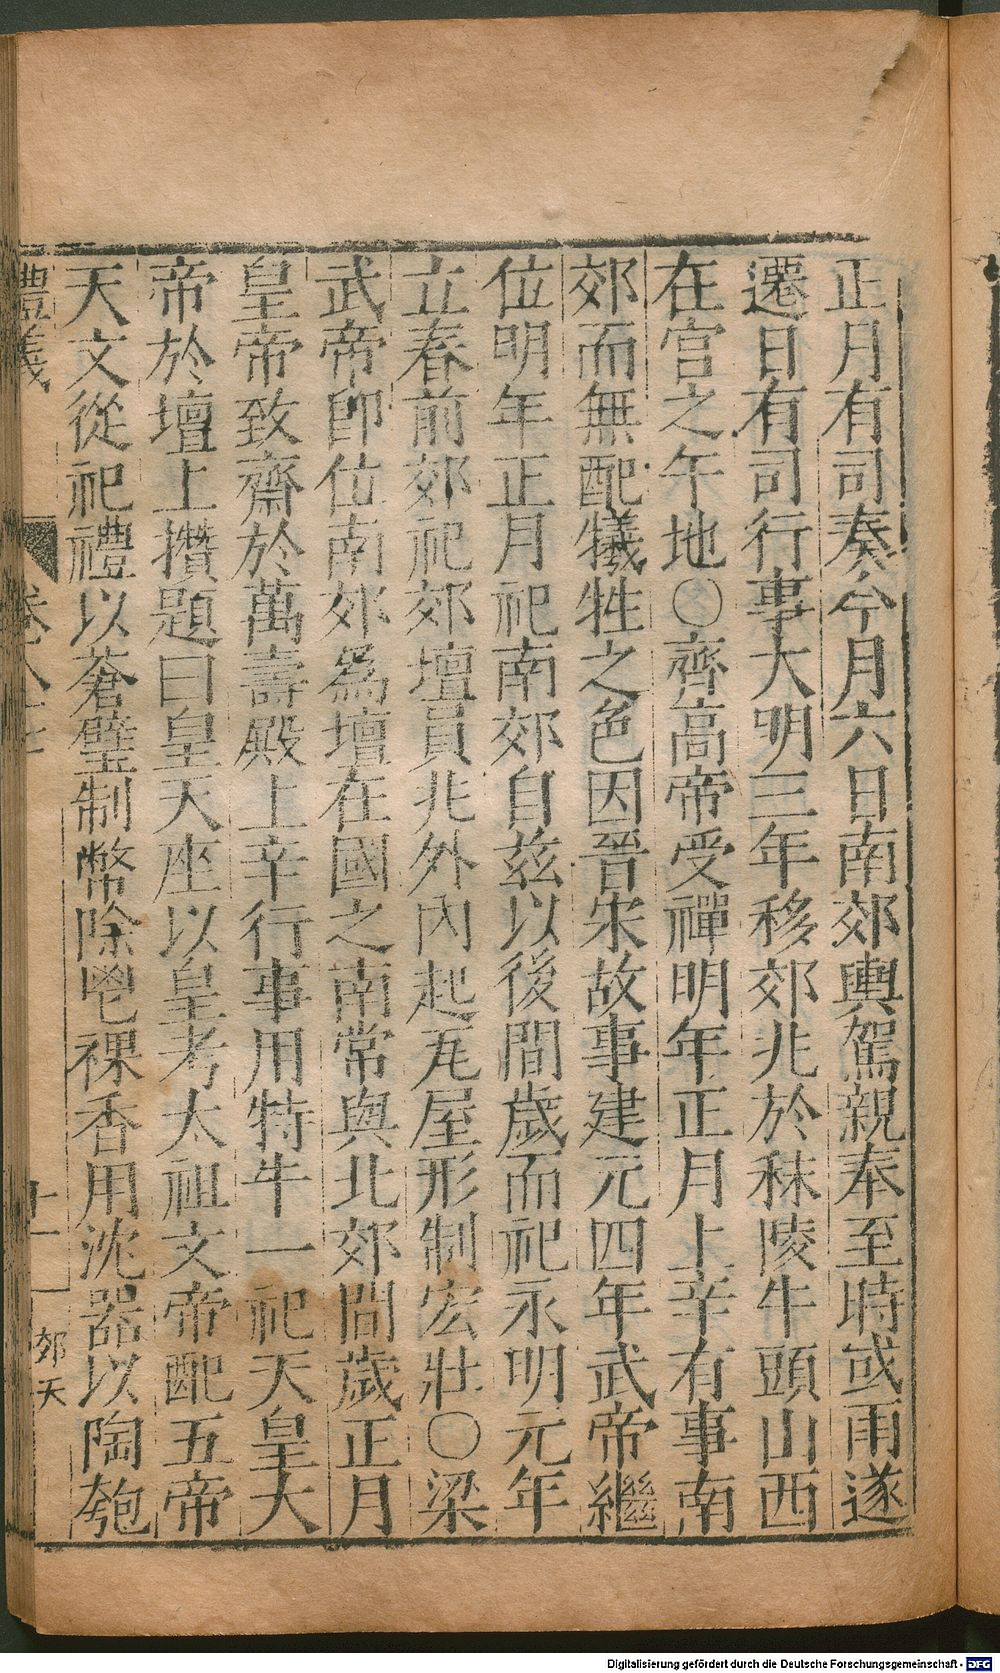 正月有司奏今月六日南郊輿駕親奉至時或雨遂
遷日有司行事大明三年移郊兆於秣陵牛頭山西
在宫之午地○齊高帝受禪明年正月上辛有事南
郊而無配犧牲之色因晉宋故事建元四年武帝繼
位明年正月祀南郊自兹以後間歲而祀永明元年
立春前郊祀郊壇員兆外内起瓦屋形制宏壯○梁
武帝卽位南郊爲壇在國之南常與北郊間歲正月
皇帝致齋於萬壽殿上辛行事用特牛一祀天皇大
帝於壇上攢題曰皇天座以皇考太祖文帝配五帝
天文從祀禮以蒼璧制幣除鬯祼香用沈器以陶匏
禮義
卷八十
十一
郊天
Digitalisierung gefördert durch die Deutsche Forschungsgemeinschaft - DFG